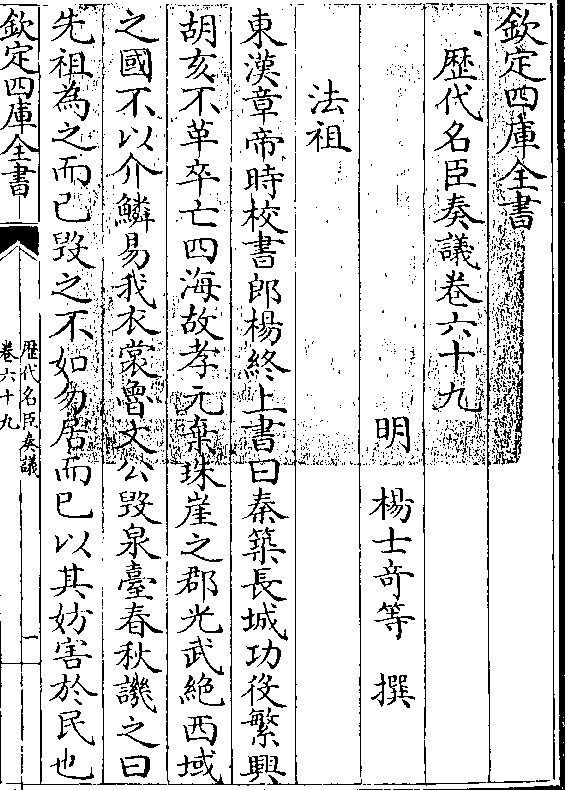 欽定四庫全書
歴代名臣奏議卷六十九
明　楊士奇等　撰
法祖
東漢章帝時校書郎楊終上書曰秦築長城功役繁興
胡亥不革卒亡四海故孝元棄珠崖之郡光武絶西域
之國不以介鱗易我衣裳魯文公毁泉臺春秋譏之曰
先祖為之而已毁之不如勿居而已以其妨害於民也
欽定四庫全書
歴代名臣奏議
卷六十九
一